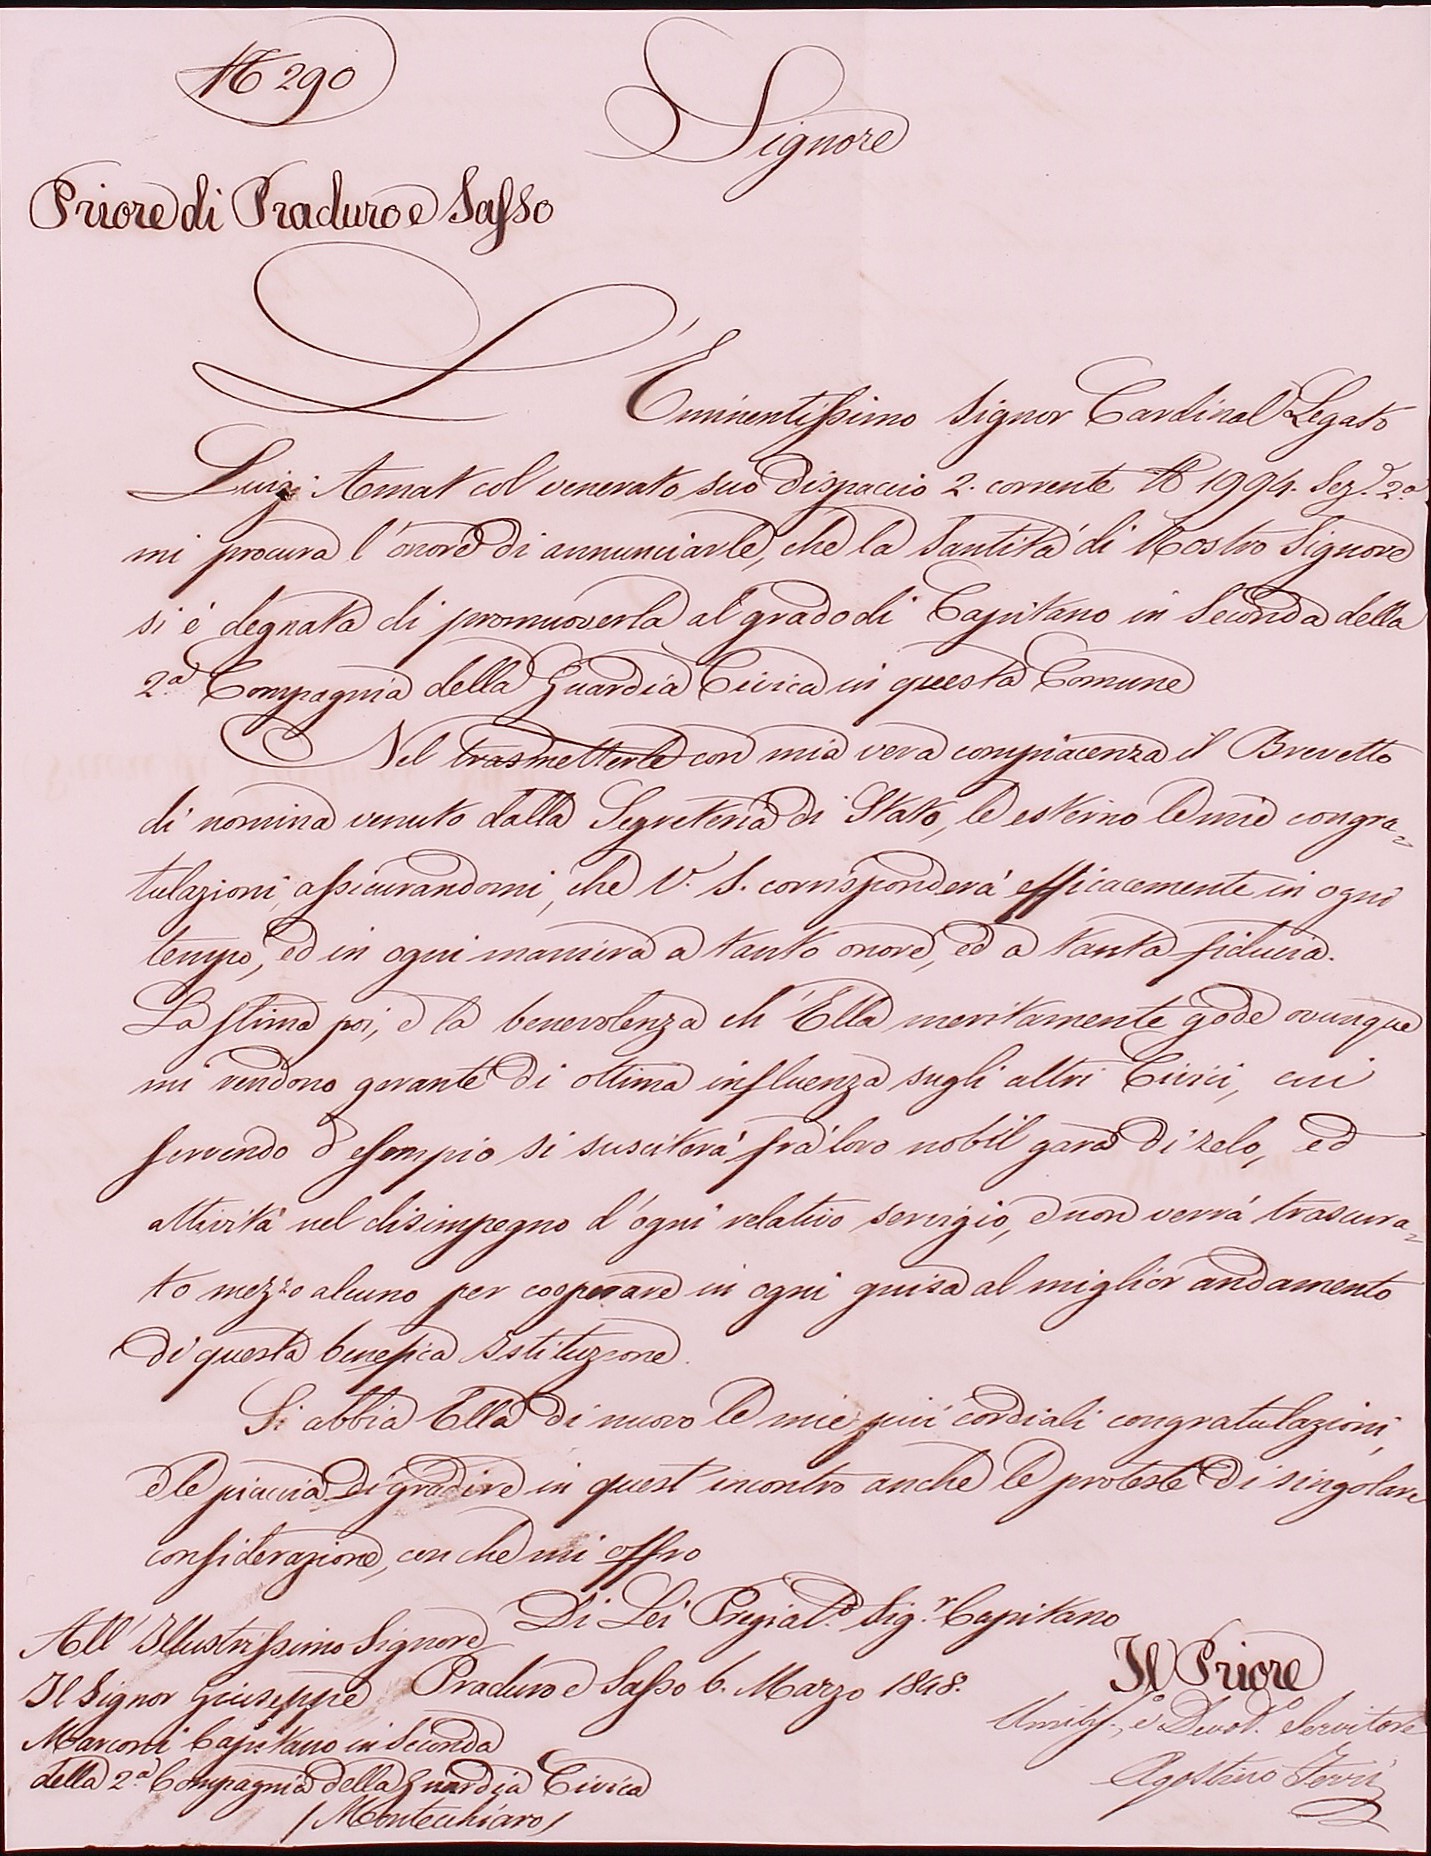 N 290
Signore
Priore di Praduro e Sasso
L' Eminentissimo Signor Cardinal Legato
Luigi Amat col venerato suo dispaccio 2. corrente N 1994. Sez.e 2a
mi procura l'onore di annunciarle, che la Santità di Nostro Signore
si è degnata di promuoverla al grado di Capitano in Seconda della
2a Compagnia della Guardia Civica in questa Comune
Nel trasmetterle con mia vera compiacenza il Brevetto
di nomina venuto dalla Segreteria di Stato, le esterno le mie congra-
tulazioni, assicurandomi, che V. S. corrisponderà efficacemente in ogni
tempo, ed in ogni maniera a tanto onore, ed a tanta fiducia.
La stima poi, e la benevolenza ch' Ella meritamente gode ovunque
mi rendono garante di ottima influenza sugli altri Civici, cui
servendo d'esempio si susciterà frà loro nobil gara di zelo, ed
attività nel disimpegno d'ogni relativo servigio, e non verrà trascura-
to mezzo alcuno per cooperare in ogni guisa al miglior andamento
di questa benefica Istituzione.
Si abbia Ella di nuovo le mie più cordiali congratulazioni,
e le piaccia di gradire in quest' incontro anche le proteste di singolare
considerazione, con che mi offro
Di Lei Pregiat.o Sig.r Capitano
All' Illustrissimo Signore
Il Signor Giuseppe
Marconi Capitano in Seconda
della 2a Compagnia della Guardia Civica
/Montechiaro/
Praduro e Sasso 6. Marzo 1848.
Il Priore
Umiliss.o e Devot.o Servitore
Agostino Ferri